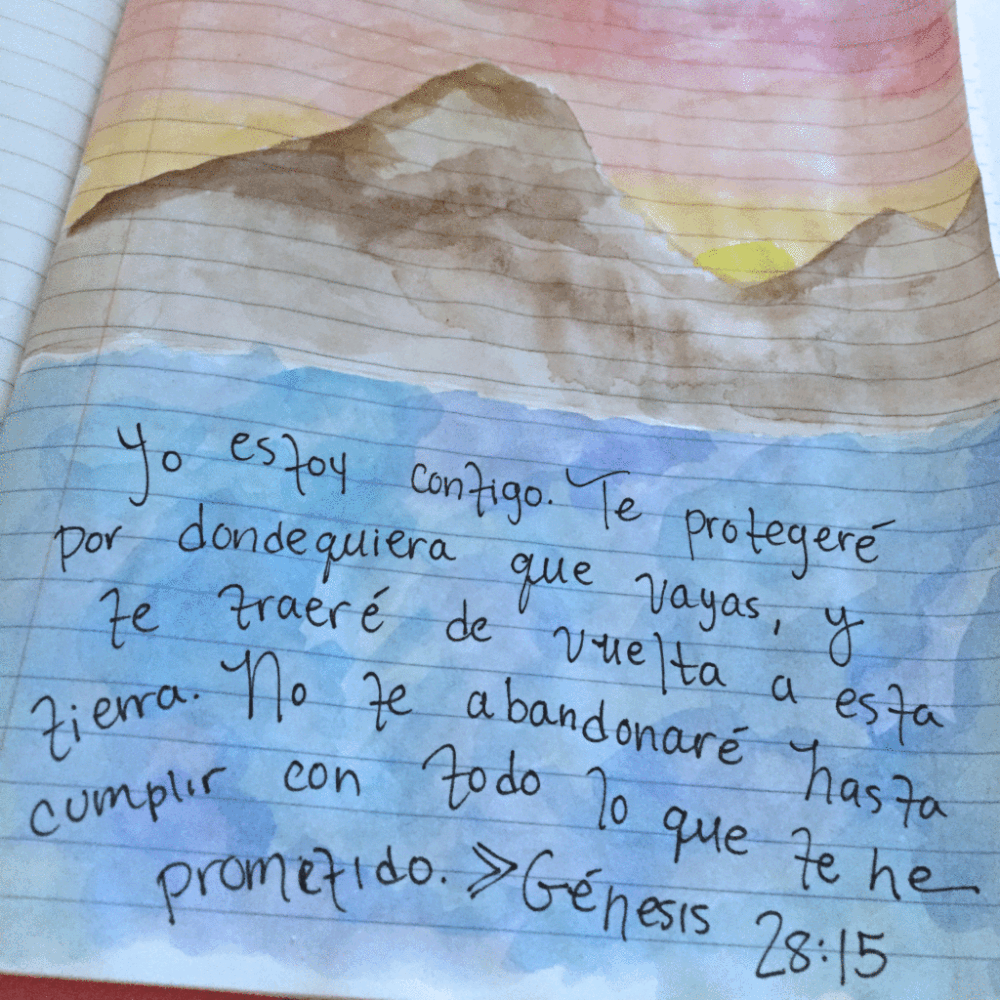 Yo estoy contigo. Te protegeré
por dondequiera que vayas, y
te traeré de vuelta a esta
tierra. No te abandonaré hasta
cumplir con todo lo que te he
prometido. » Génesis 28:15